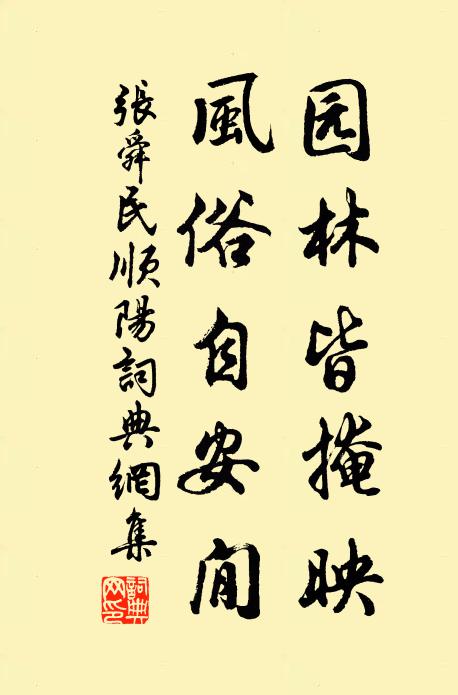 园林皆掩映
風俗自安閒
張舜民順陽詞典網集
詞典網印